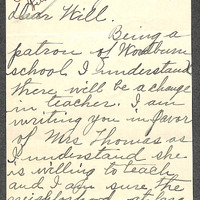 Dear Will.
Being a
patron of Woodburn
school I understand
there will be a change
in teacher. I am
writing you in favor
of Mrs Thomas as
I understand she
is willing to teach
and I am sure the
neighborhood at